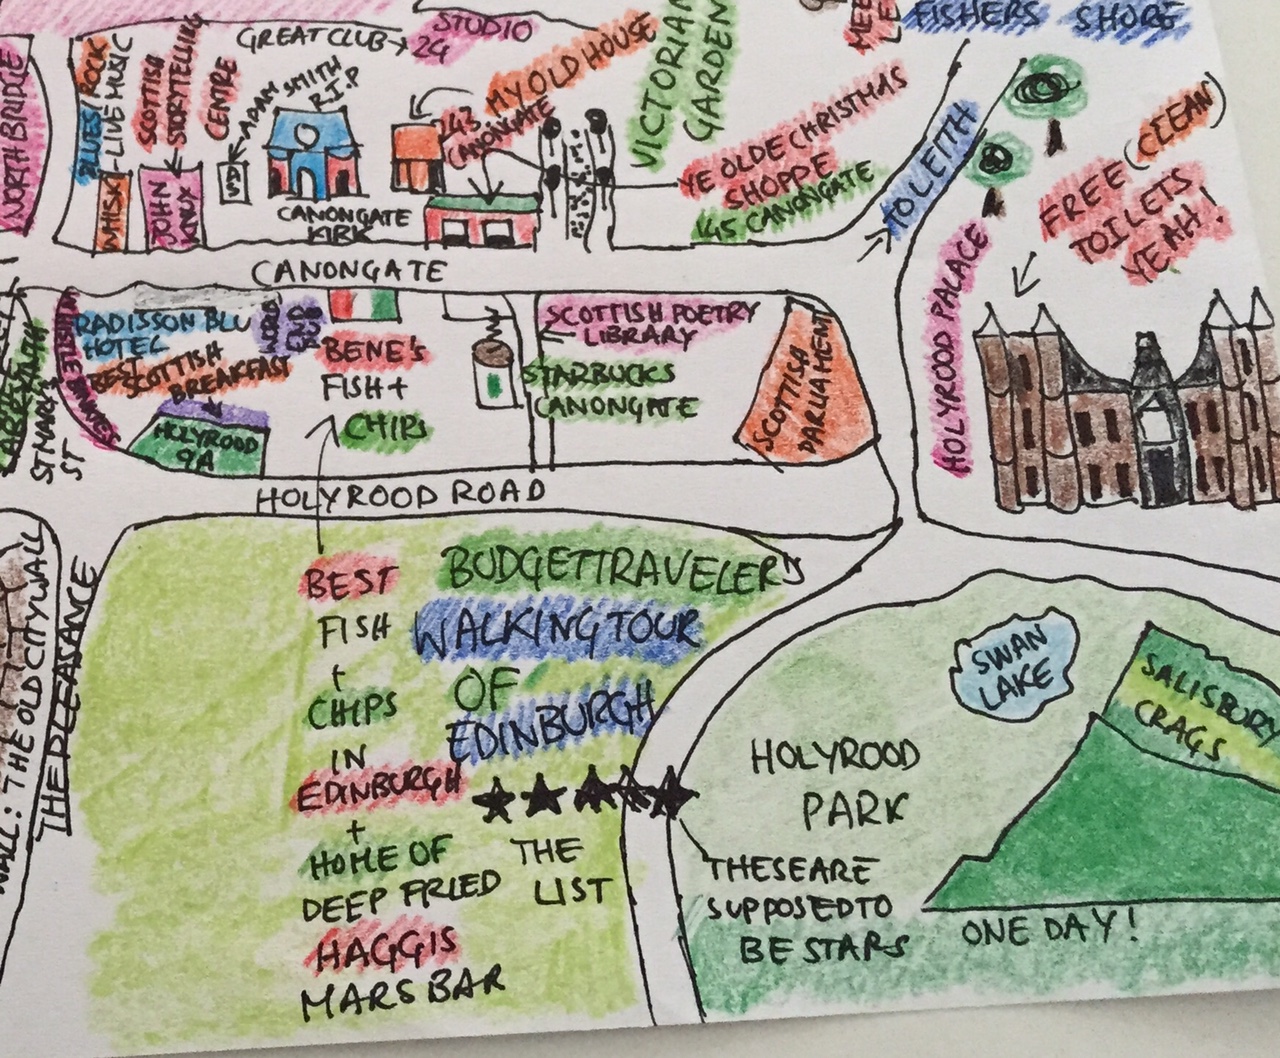 NORTH BRIDGE
BLUES/ROCK
-LIVE MUSIC
WHISKI
SCOTTISH
STORYTELLING
CENTRE
JOHN
KNOX
GREAT CLUB
STUDIO
24
ADAM SMITH
R.I.P
AS
CANONGATE
KIRK
MY OLD HOUSE
243
CANONGATE
VICTORIAN
GARDEN
YE OLDE CHRISTMAS
SHOPPE
145 CANONGATE
FISHERS SHORE
TO LEITH
FREE (CLEAN)
TOILETS
YEAH!
HOLYROOD PALACE
CANONGATE
ST MARY'S
ST
RADISSON BLU
HOTEL
BEST SCOTTISH
BREAKFAST
HOLYROOD
9A
BENE'S
FISH +
CHIPS
SCOTTISH POETRY
LIBRARY
STARBUCKS
CANONGATE
SCOTTISH
PARLIAMENT
HOLYROOD ROAD
WALL: THE OLD CITY WALL
THE PLEASANCE
BEST
FISH
+
CHIPS
IN
EDINBURGH
+
HOME OF
DEEP FRIED
HAGGIS
MARS BAR
BUDGETTRAVELER
WALKING TOUR
OF
EDINBURGH
THE
LIST
THESE ARE
SUPPOSED TO
BE STARS
HOLYROOD
PARK
SWAN
LAKE
SALISBURY
CRAGS
ONE DAY!